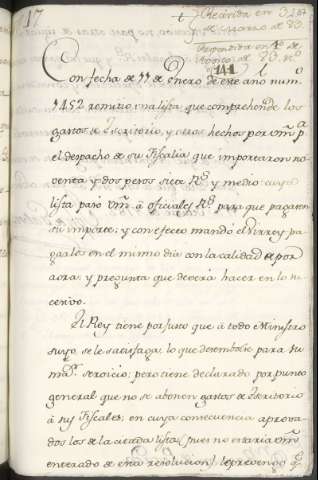 17
Recivida en 3
de Marzo de 83
Respondida en 1º de
de 83. nº
141
Con fecha de 11 de Enero de este año num.
1452 remitio una lista que comprehende los
gastos de Escritorio, y otros hechos por vm pª
el despacho de su Fiscalia que importaron no-
venta y dos pesos siete rs y medio: cuya
lista paso vm. á oficiales Rs para que pagasen
su importe; y con efecto mandó el Virrey pa-
garlos en el mismo dia con la calidad de por
aora; y pregunta que deverá hacer en lo su-
cesivo.
El Rey tiene por justo que á todo Ministro
suyo se le satisfaga lo que desembolse para su
rl. servicio; pero tiene declarado por punto
general que no se abonen gastos de Escritorio
á sus Fiscales; en cuya consecuencia aprova-
dos los de la citada lista (pues no estaria vm
enterado de esta resolucion) le prevengo qe